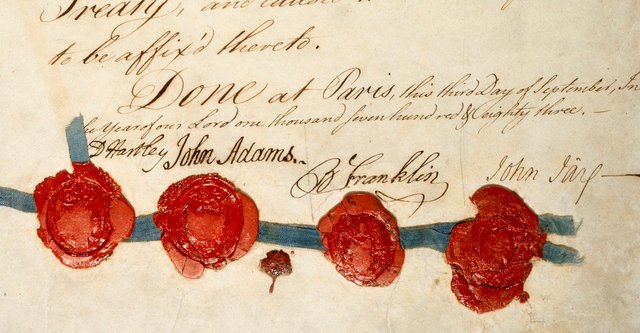 Treaty, and
to be affix'd thereto.
Done at Paris, this third Day of September, In
the Year of our Lord one thousand seven hundred & eighty three. —
D Hartley John Adams. B Franklin John Jay —